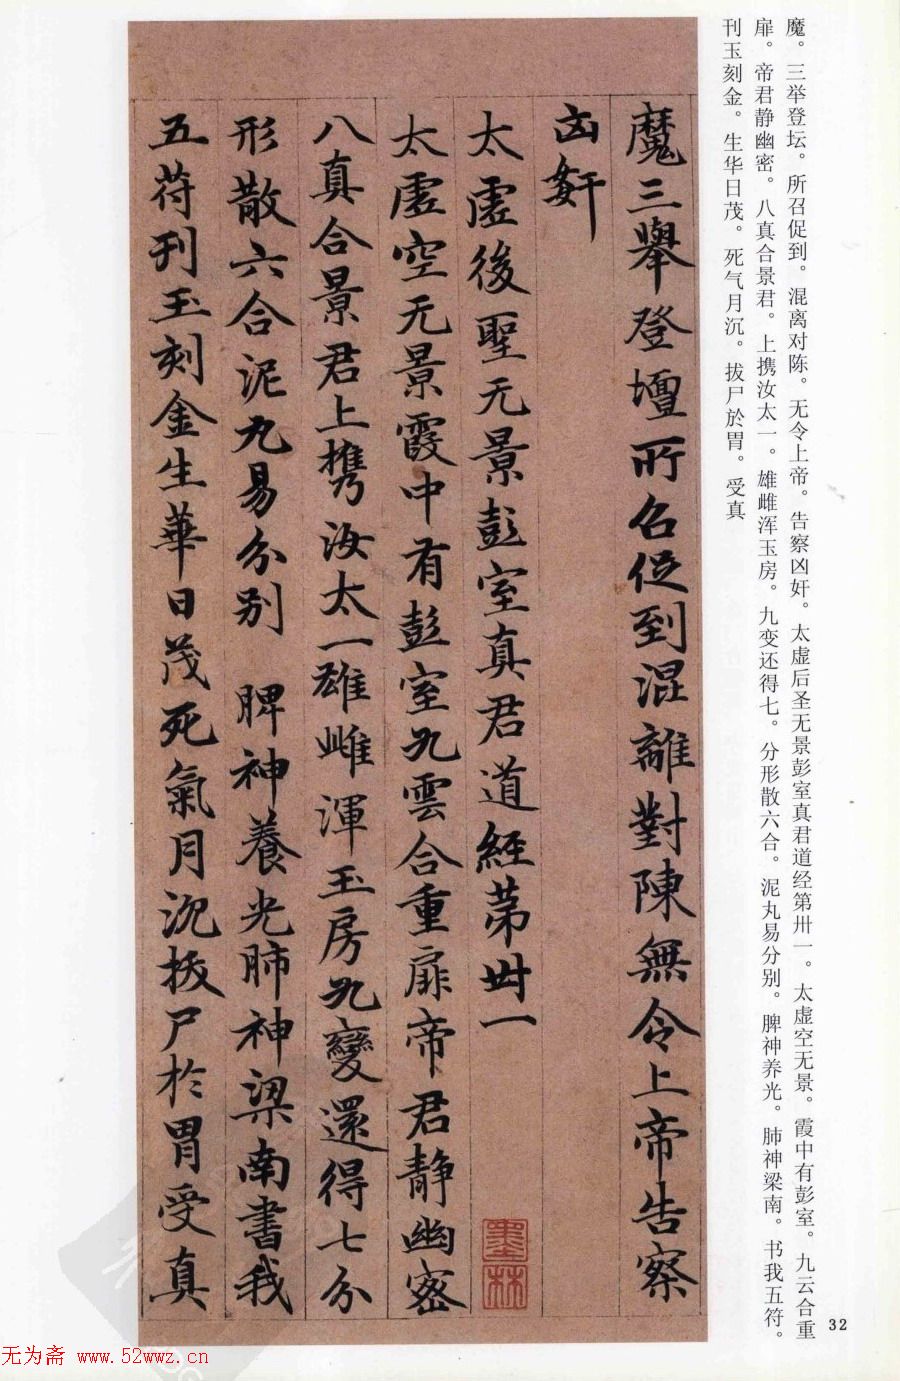 魔。三举登坛。所召促到。混离对陈。无令上帝。告察凶奸。太虚后圣无景彭室真君道经第卅一。太虚空无景。霞中有彭室。九云合重
扉。帝君静幽密。八真合景君。上携汝太一。雄雌浑玉房。九变还得七。分形散六合。泥丸易分别。脾神养光。肺神梁南。书我五符。
刊玉刻金。生华日茂。死气月沉。拔尸於胃。受真
魔三舉登壇所召促到混離對陳無令上帝告察
凶奸
太虛後聖无景彭室真君道經第卅一
太虛空无景霞中有彭室九雲合重扉帝君靜幽密
八真合景君上攜汝太一雄雌渾玉房九變還得七分
形散六合泥丸易分别 脾神養光肺神梁南書我
五符刊玉刻金生華日茂死氣月沉拔尸於胃受真
墨林
32
无为斋 www.52wwz.cn